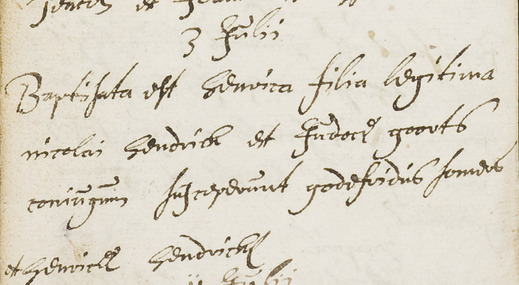 et
3 Julii
Baptisata est Henrica filia legitima
nicolai Hendrick et Judoce goorts
coniugum susceperunt godefridus
et Henrica Hendrick
Julii